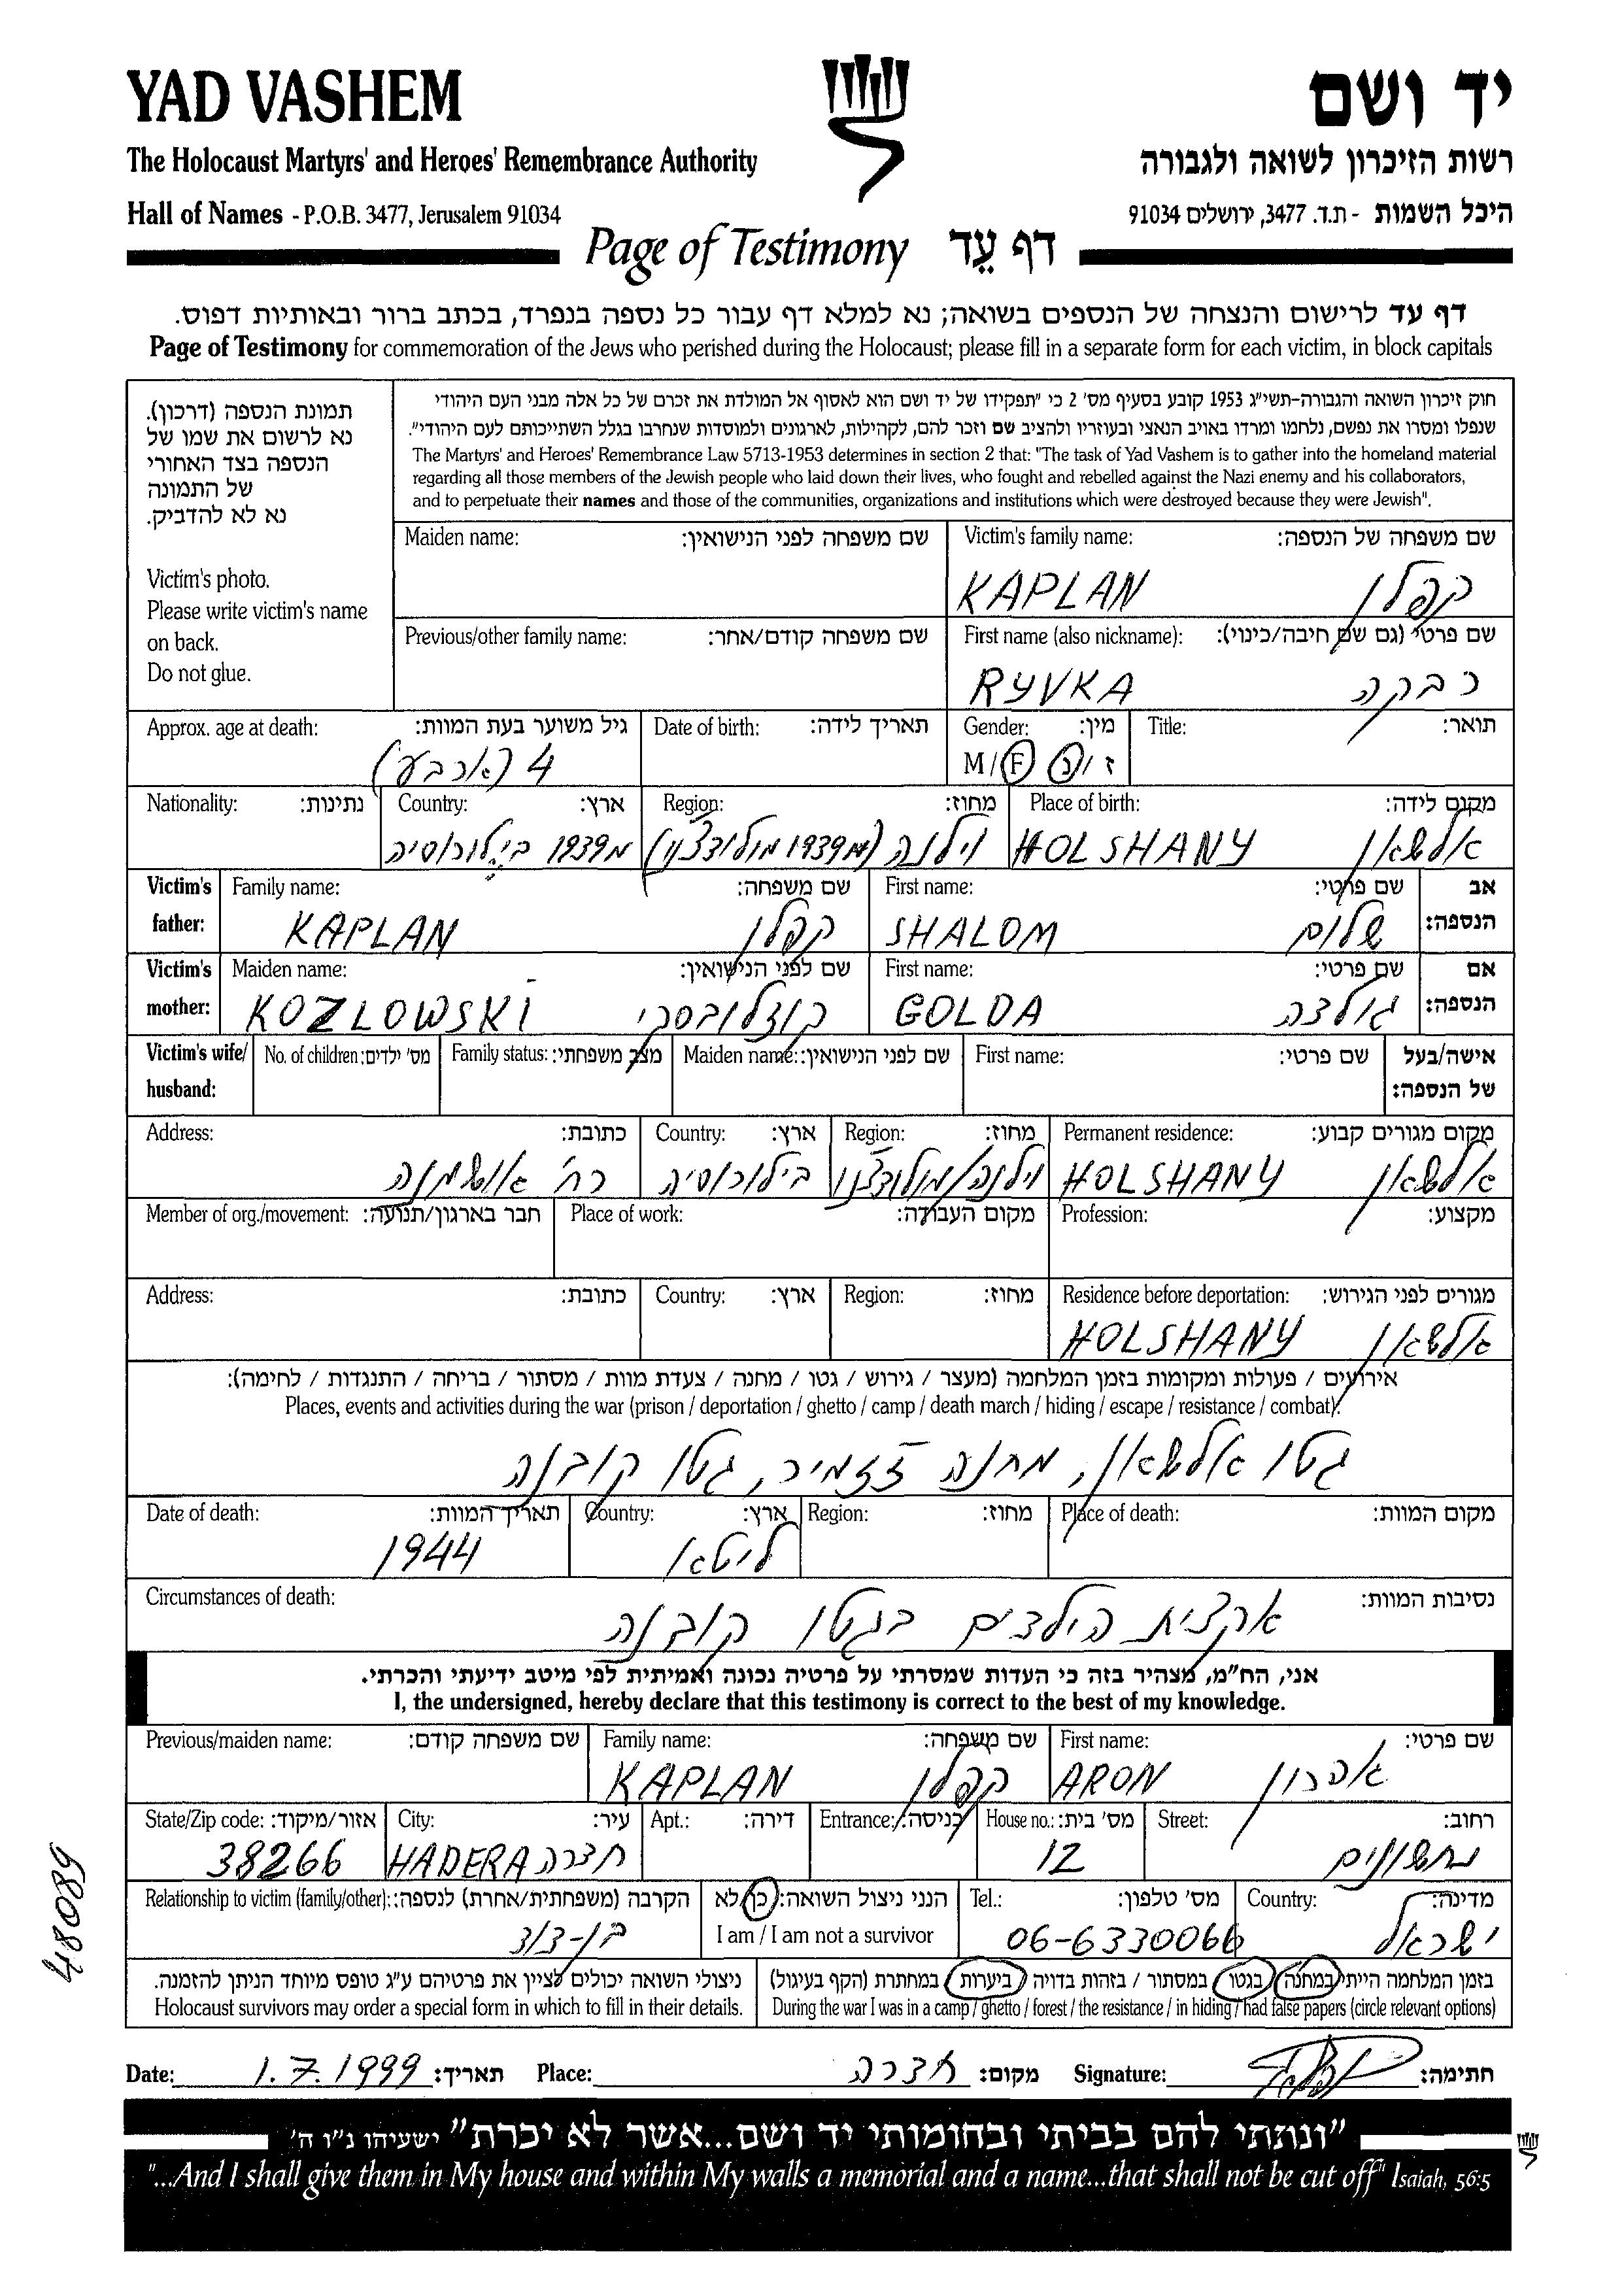 YAD VASHEM יד ושם
The Holocaust Martyrs' and Heroes' Remembrance Authority רשות הזיכרון לשואה ולגבורה
Hall of Names - P.O.B. 3477, Jerusalem 91034 היכל השמות - ת.ד. 3477, ירושלים 91034
Page of Testimony דף עֵד
דף עד לרישום והנצחה של הנספים בשואה; נא למלא דף עבור כל נספה בנפרד, בכתב ברור ובאותיות דפוס.
Page of Testimony for commemoration of the Jews who perished during the Holocaust; please fill in a separate form for each victim, in block capitals
תמונת הנספה (דרכון).
נא לרשום את שמו של
הנספה בצד האחורי
של התמונה
נא לא להדביק.
Victim's photo.
Please write victim's name
on back.
Do not glue.
חוק זיכרון השואה והגבורה-תשי"ג 1953 קובע בסעיף מס' 2 כי "תפקידו של יד ושם הוא לאסוף אל המולדת את זכרם של כל אלה מבני העם היהודי
שנפלו ומסרו את נפשם, נלחמו ומרדו באויב הנאצי ובעוזריו ולהציב שם וזכר להם, לקהילות, לארגונים ולמוסדות שנחרבו בגלל השתייכותם לעם היהודי".
The Martyrs' and Heroes' Remembrance Law 5713-1953 determines in section 2 that: "The task of Yad Vashem is to gather into the homeland material
regarding all those members of the Jewish people who laid down their lives, who fought and rebelled against the Nazi enemy and his collaborators,
and to perpetuate their names and those of the communities, organizations and institutions which were destroyed because they were Jewish".
Maiden name: שם משפחה לפני הנישואין: Victim's family name: שם משפחה של הנספה:
KAPLAN קפלן
Previous/other family name: שם משפחה קודם/אחר: First name (also nickname): שם פרטי (גם שם חיבה/כינוי):
RYVKA רבקה
Approx. age at death: גיל משוער בעת המוות: Date of birth: תאריך לידה: Gender: מין: Title: תואר:
4 (ארבע) M / F ז / נ
Nationality: נתינות: Country: ארץ: Region: מחוז: Place of birth: מקום לידה:
מ1939 בילורוסיה וילנה (מ1939 מולודצ'נו) HOLSHANY אלשאן
Victim's father: Family name: שם משפחה: First name: שם פרטי: אב הנספה:
KAPLAN קפלן SHALOM שלום
Victim's mother: Maiden name: שם לפני הנישואין: First name: שם פרטי: אם הנספה:
KOZLOWSKI קוזלובסקי GOLDA גולדה
Victim's wife/ husband: No. of children: מס' ילדים: Family status: מצב משפחתי: Maiden name: שם לפני הנישואין: First name: שם פרטי: אישה/בעל של הנספה:
Address: כתובת: Country: ארץ: Region: מחוז: Permanent residence: מקום מגורים קבוע:
רח' אושמנה בילורוסיה וילנה/מולודצ'נו HOLSHANY אלשאן
Member of org./movement: חבר בארגון/תנועה: Place of work: מקום העבודה: Profession: מקצוע:
Address: כתובת: Country: ארץ: Region: מחוז: Residence before deportation: מגורים לפני הגירוש:
HOLSHANY אלשאן
אירועים / פעולות ומקומות בזמן המלחמה (מעצר / גירוש / גטו / מחנה / צעדת מוות / מסתור / בריחה / התנגדות / לחימה):
Places, events and activities during the war (prison / deportation / ghetto / camp / death march / hiding / escape / resistance / combat):
גטו אלשאן, מחנה ז'זמיר, גטו קובנה
Date of death: תאריך המוות: Country: ארץ: Region: מחוז: Place of death: מקום המוות:
1944 ליטא
Circumstances of death: נסיבות המוות:
אקצית הילדים בגטו קובנה
אני, הח"מ, מצהיר בזה כי העדות שמסרתי על פרטיה נכונה ואמיתית לפי מיטב ידיעתי והכרתי.
I, the undersigned, hereby declare that this testimony is correct to the best of my knowledge.
Previous/maiden name: שם משפחה קודם: Family name: שם משפחה: First name: שם פרטי:
KAPLAN קפלן ARON אהרון
State/Zip code: אזור/מיקוד: City: עיר: Apt.: דירה: Entrance: כניסה: House no.: מס' בית: Street: רחוב:
38266 HADERA חדרה 12 נחשונים
Relationship to victim (family/other): הקרבה (משפחתית/אחרת) לנספה: הנני ניצול השואה: כן/לא Tel.: מס' טלפון: Country: מדינה:
בן-דוד I am / I am not a survivor 06-6330066 ישראל
ניצולי השואה יכולים לציין את פרטיהם ע"ג טופס מיוחד הניתן להזמנה. בזמן המלחמה הייתי במחנה / בגטו / במסתור / בזהות בדויה / ביערות / במחתרת (הקף בעיגול)
Holocaust survivors may order a special form in which to fill in their details. During the war I was in a camp / ghetto / forest / the resistance / in hiding / had false papers (circle relevant options)
Date: 1.7.1999 תאריך: Place: חדרה מקום: Signature: חתימה:
"ונתתי להם בביתי ובחומותי יד ושם...אשר לא יכרת" ישעיהו נ"ו ה'
"...And I shall give them in My house and within My walls a memorial and a name...that shall not be cut off" Isaiah, 56:5
48089